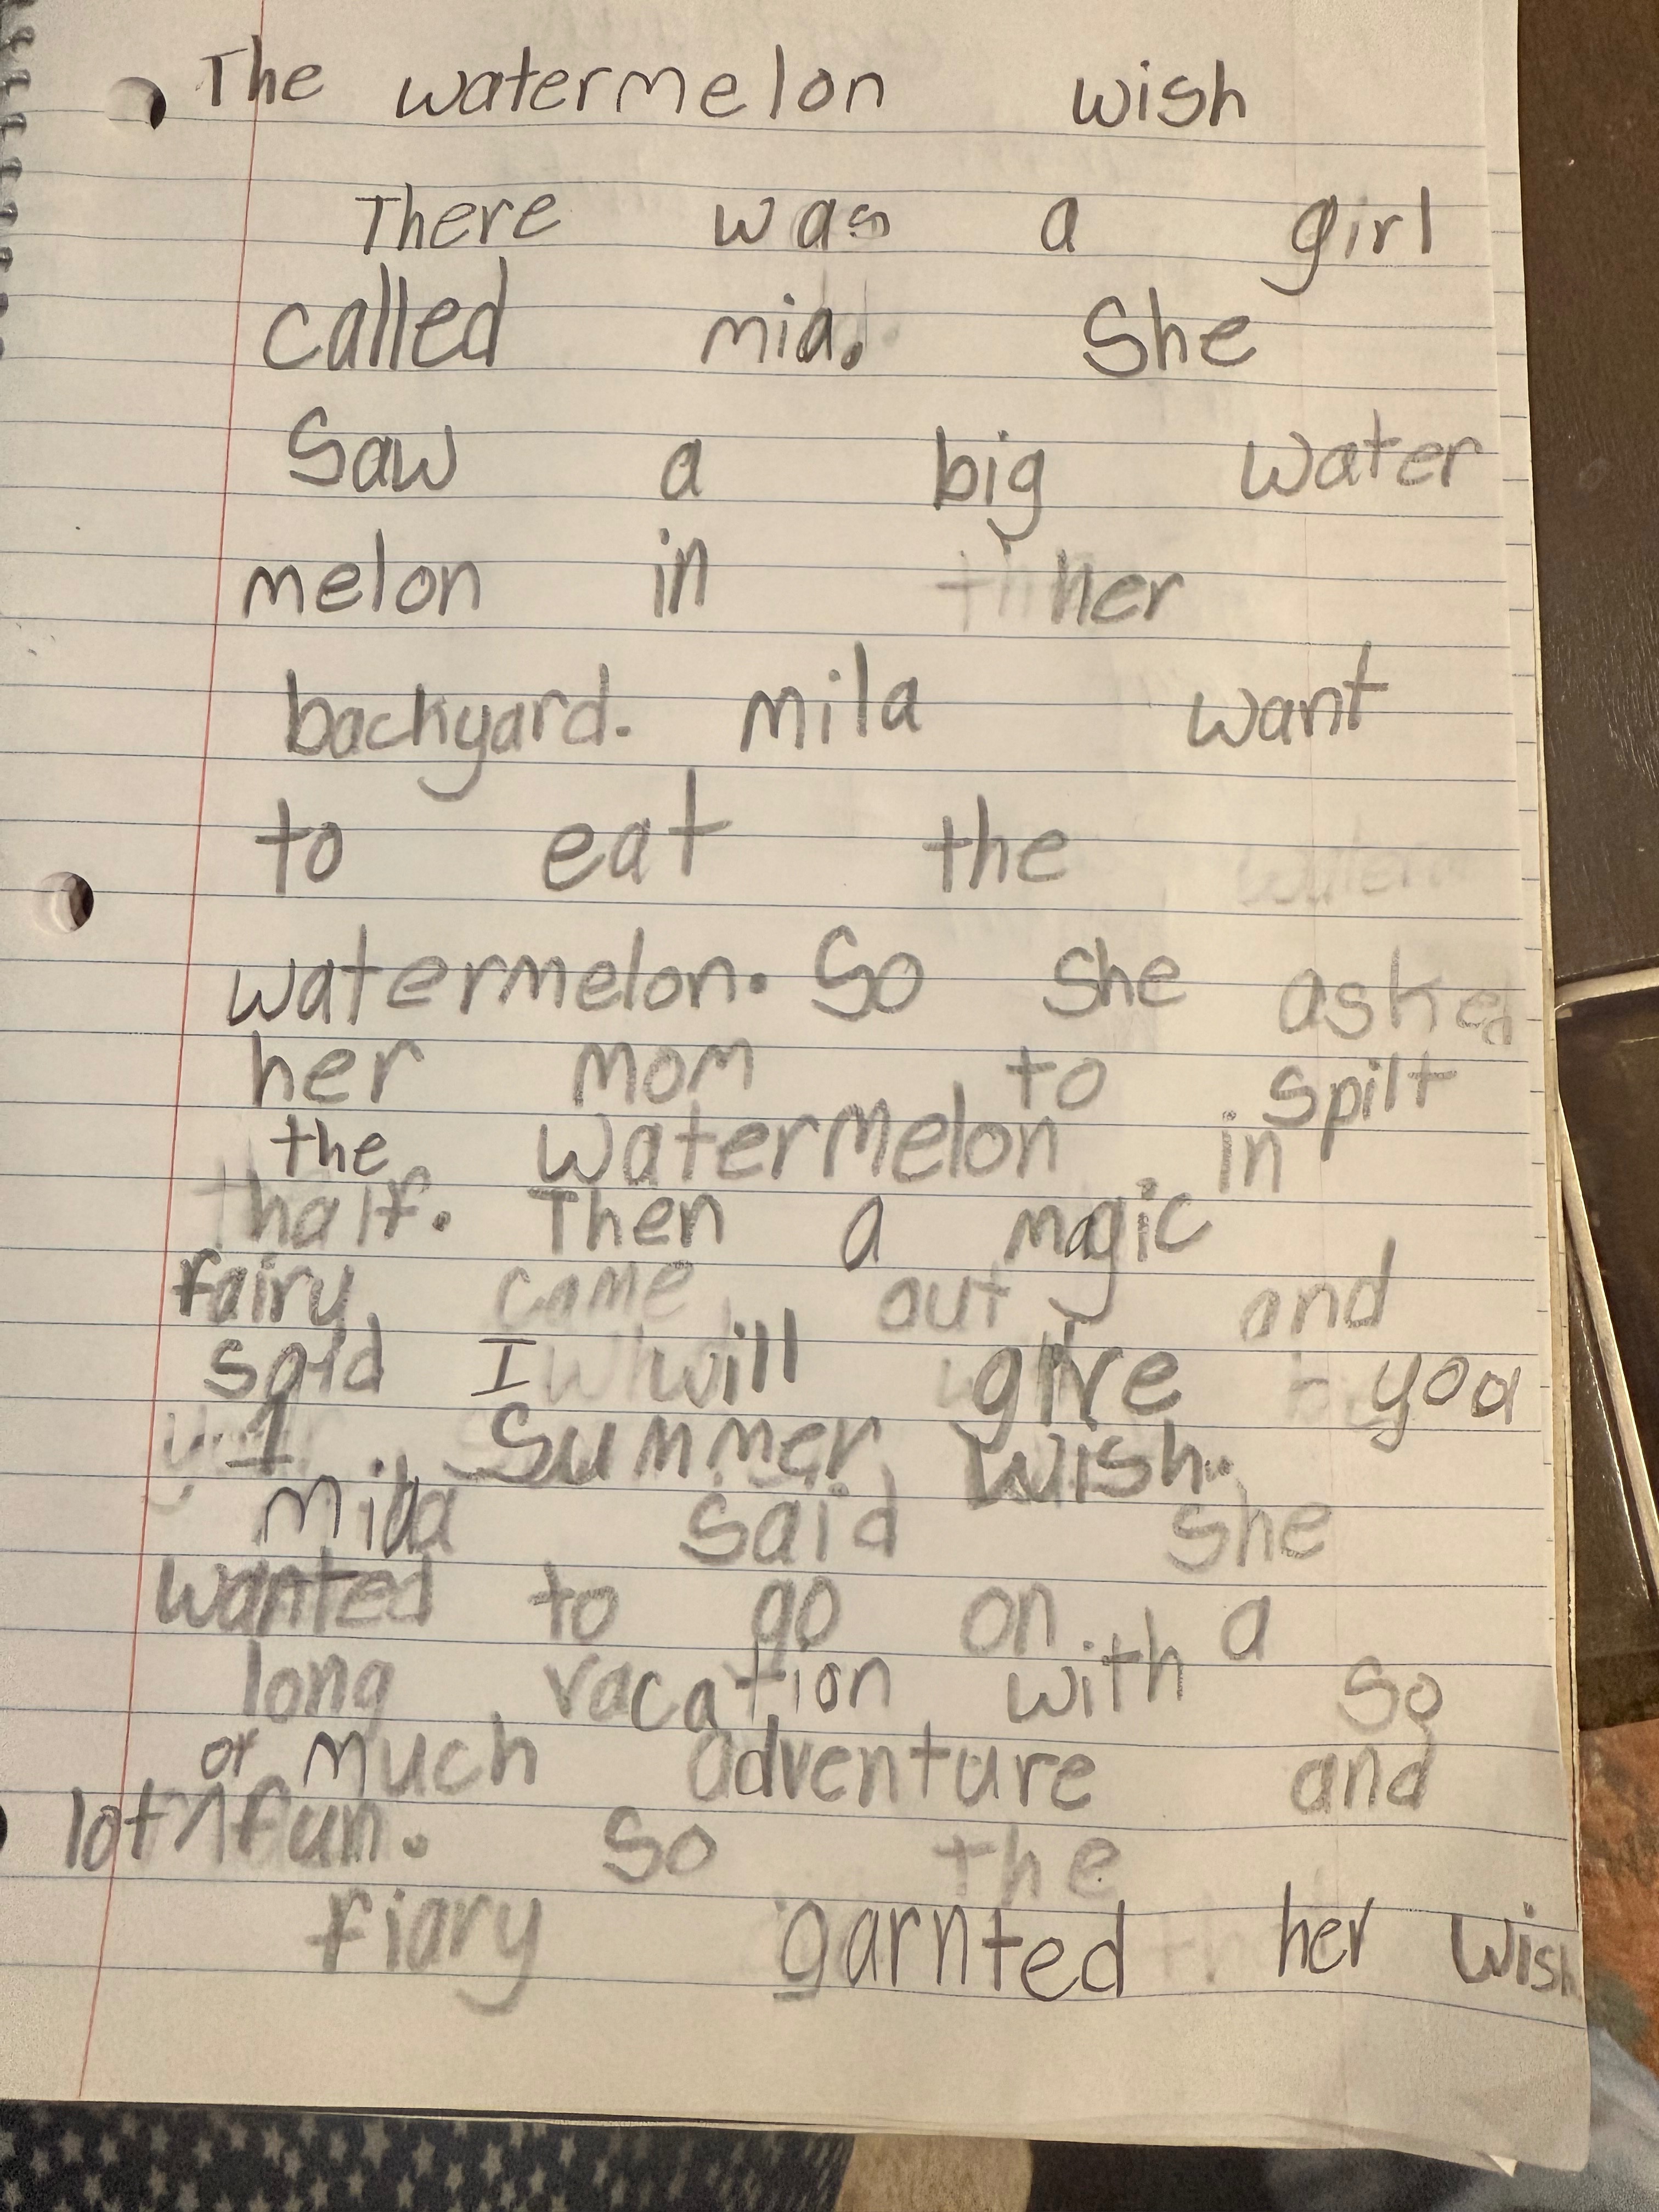 The watermelon wish
There was a girl
called mia. She
Saw a big water
melon in her
backyard. mila want
to eat the
watermelon. So she asked
her mom to spilt
the watermelon in
half. Then a magic
fairy came out and
said I will give you
1 Summer Wish.
Mila said she
wanted to go on a
long vacation with so
much adventure and
lot of fun. So the
fiary garnted her wish